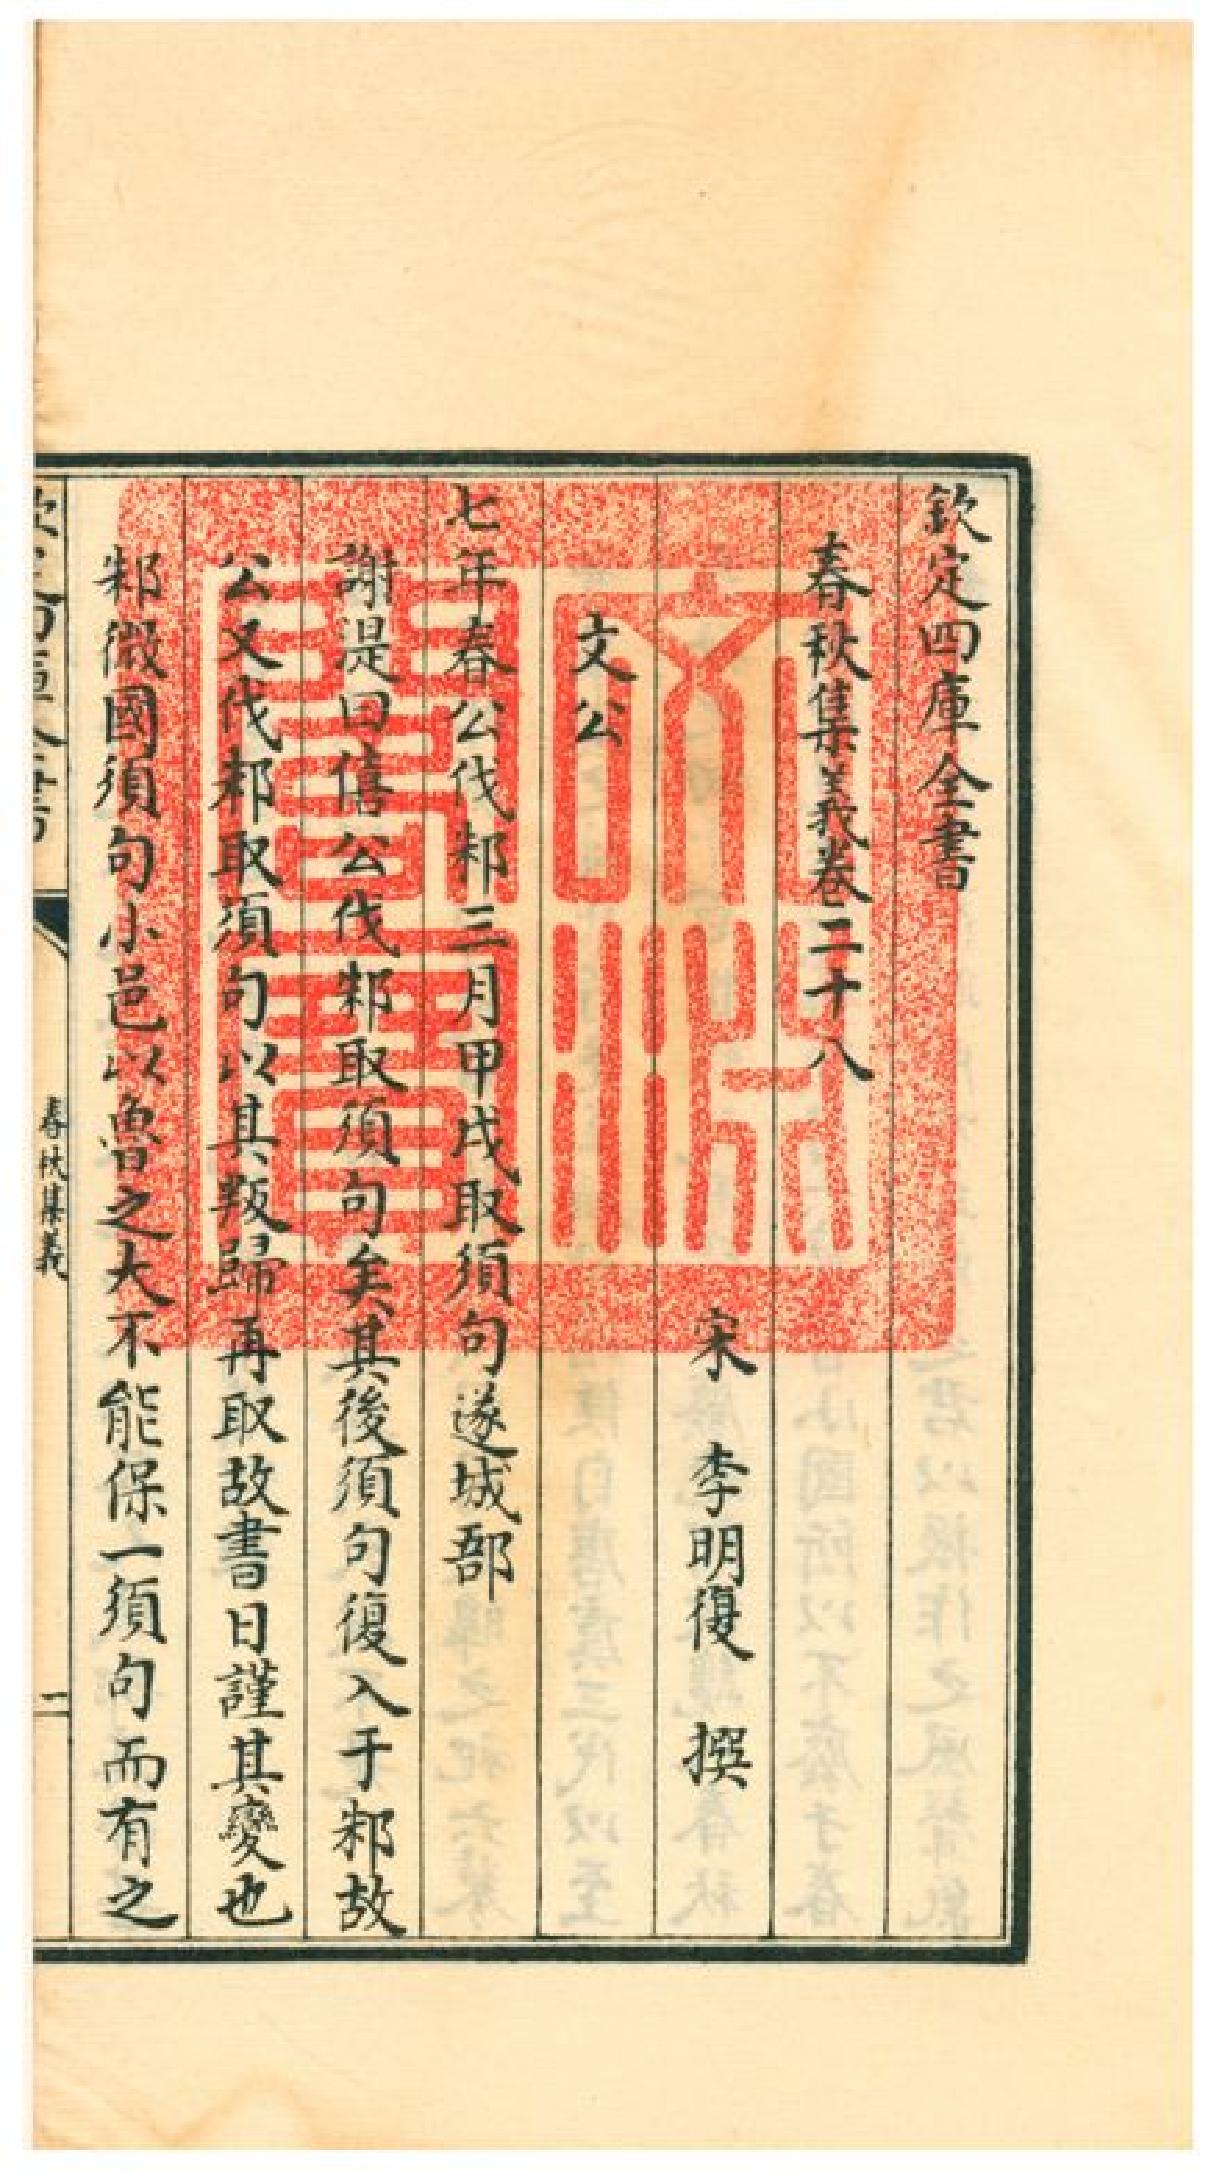 欽定四庫全書
春秋集義卷二十八
宋 李明復 撰
文公
七年春公伐邾三月甲戌取須句遂城郚
謝湜曰僖公伐邾取須句矣其後須句復入于邾故
公又伐邾取須句以其叛歸再取故書日謹其變也
邾微國須句小邑以魯之大不能保一須句而有之
春秋集義